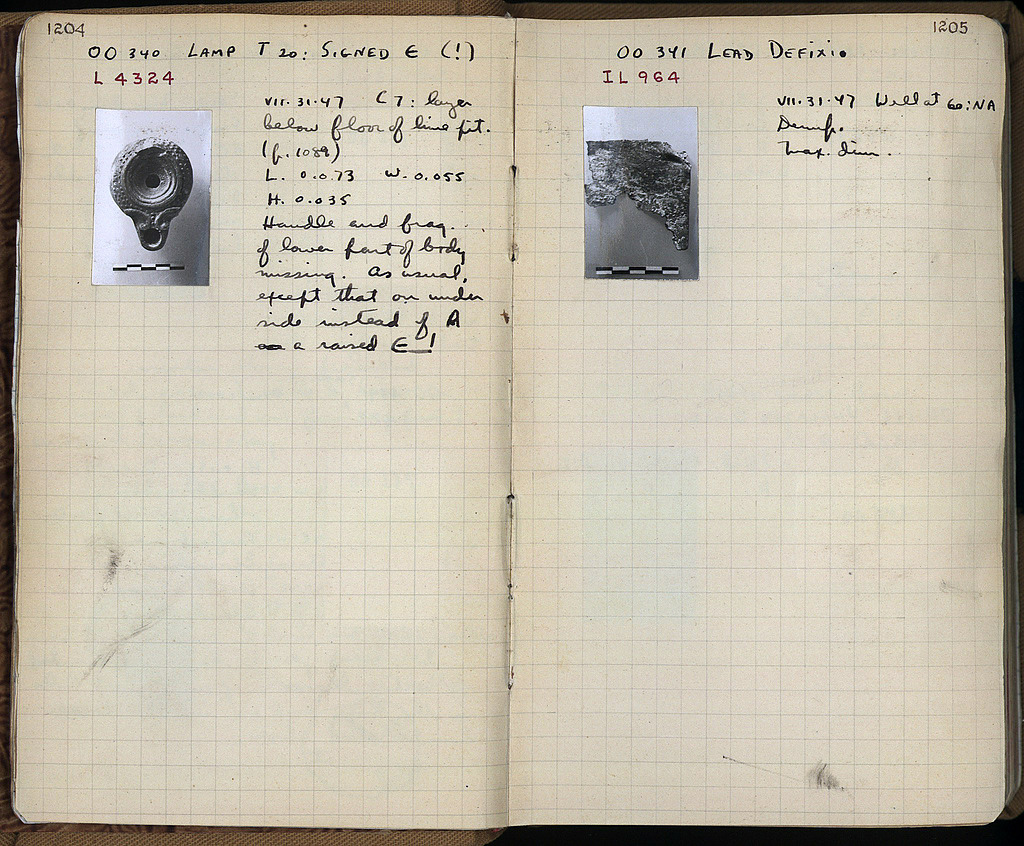 1204
OO 340 LAMP T 20: SIGNED E (!)
L 4324
VII.31.47 C 7: layer
below floor of lime pit.
(p. 1089)
L. 0.073 W. 0.055
H. 0.035
Handle and frag.
of lower part of body
missing. As usual,
except that on under
side instead of A
a raised E !
1205
OO 341 LEAD DEFIXIO
IL 964
VII.31.47 Well at 60:NA
Dump.
Max. dim.